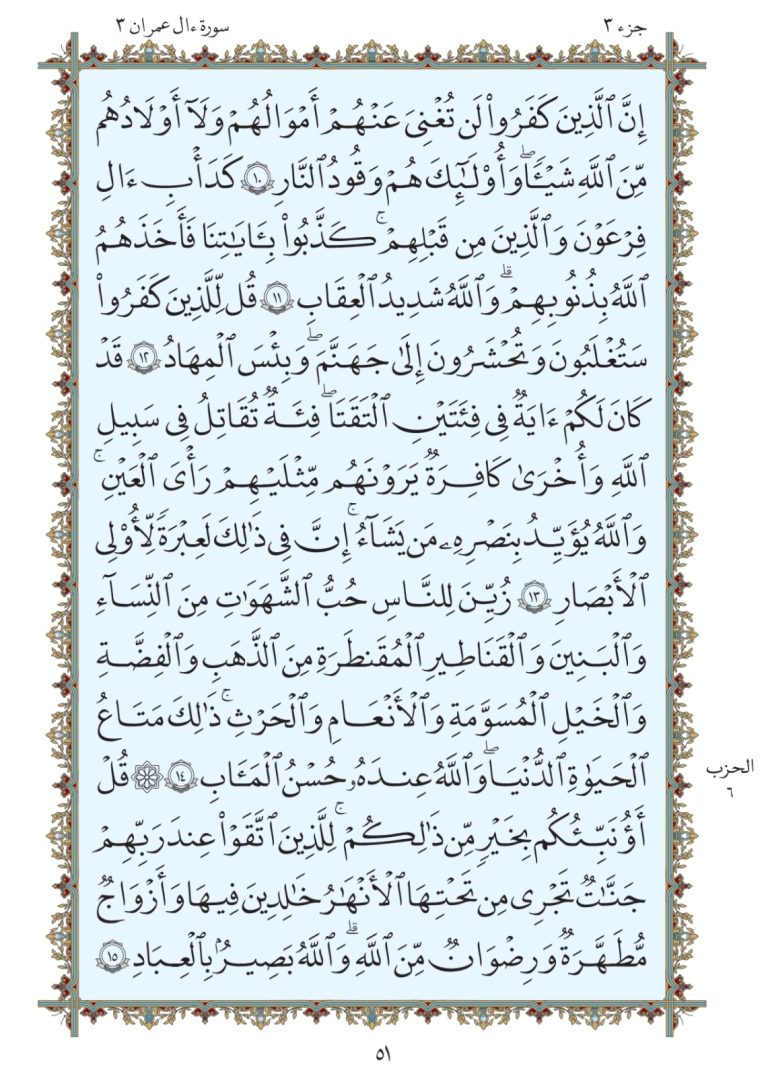 جزء ٣
سورة ءال عمران ٣
إِنَّ ٱلَّذِينَ كَفَرُوا۟ لَن تُغْنِىَ عَنْهُمْ أَمْوَٰلُهُمْ وَلَآ أَوْلَـٰدُهُم
مِّنَ ٱللَّهِ شَيْـًٔا ۖ وَأُو۟لَـٰٓئِكَ هُمْ وَقُودُ ٱلنَّارِ ١٠ كَدَأْبِ ءَالِ
فِرْعَوْنَ وَٱلَّذِينَ مِن قَبْلِهِمْ ۚ كَذَّبُوا۟ بِـَٔايَـٰتِنَا فَأَخَذَهُمُ
ٱللَّهُ بِذُنُوبِهِمْ ۗ وَٱللَّهُ شَدِيدُ ٱلْعِقَابِ ١١ قُل لِّلَّذِينَ كَفَرُوا۟
سَتُغْلَبُونَ وَتُحْشَرُونَ إِلَىٰ جَهَنَّمَ ۖ وَبِئْسَ ٱلْمِهَادُ ١٢ قَدْ
كَانَ لَكُمْ ءَايَةٌ فِى فِئَتَيْنِ ٱلْتَقَتَا ۖ فِئَةٌ تُقَـٰتِلُ فِى سَبِيلِ
ٱللَّهِ وَأُخْرَىٰ كَافِرَةٌ يَرَوْنَهُم مِّثْلَيْهِمْ رَأْىَ ٱلْعَيْنِ ۚ
وَٱللَّهُ يُؤَيِّدُ بِنَصْرِهِۦ مَن يَشَآءُ ۗ إِنَّ فِى ذَٰلِكَ لَعِبْرَةً لِّأُو۟لِى
ٱلْأَبْصَـٰرِ ١٣ زُيِّنَ لِلنَّاسِ حُبُّ ٱلشَّهَوَٰتِ مِنَ ٱلنِّسَآءِ
وَٱلْبَنِينَ وَٱلْقَنَـٰطِيرِ ٱلْمُقَنطَرَةِ مِنَ ٱلذَّهَبِ وَٱلْفِضَّةِ
وَٱلْخَيْلِ ٱلْمُسَوَّمَةِ وَٱلْأَنْعَـٰمِ وَٱلْحَرْثِ ۗ ذَٰلِكَ مَتَـٰعُ
ٱلْحَيَوٰةِ ٱلدُّنْيَا ۖ وَٱللَّهُ عِندَهُۥ حُسْنُ ٱلْمَـَٔابِ ١٤ ۞ قُلْ
أَؤُنَبِّئُكُم بِخَيْرٍ مِّن ذَٰلِكُمْ ۚ لِلَّذِينَ ٱتَّقَوْا۟ عِندَ رَبِّهِمْ
جَنَّـٰتٌ تَجْرِى مِن تَحْتِهَا ٱلْأَنْهَـٰرُ خَـٰلِدِينَ فِيهَا وَأَزْوَٰجٌ
مُّطَهَّرَةٌ وَرِضْوَٰنٌ مِّنَ ٱللَّهِ ۗ وَٱللَّهُ بَصِيرٌۢ بِٱلْعِبَادِ ١٥
الحزب
٦
٥١